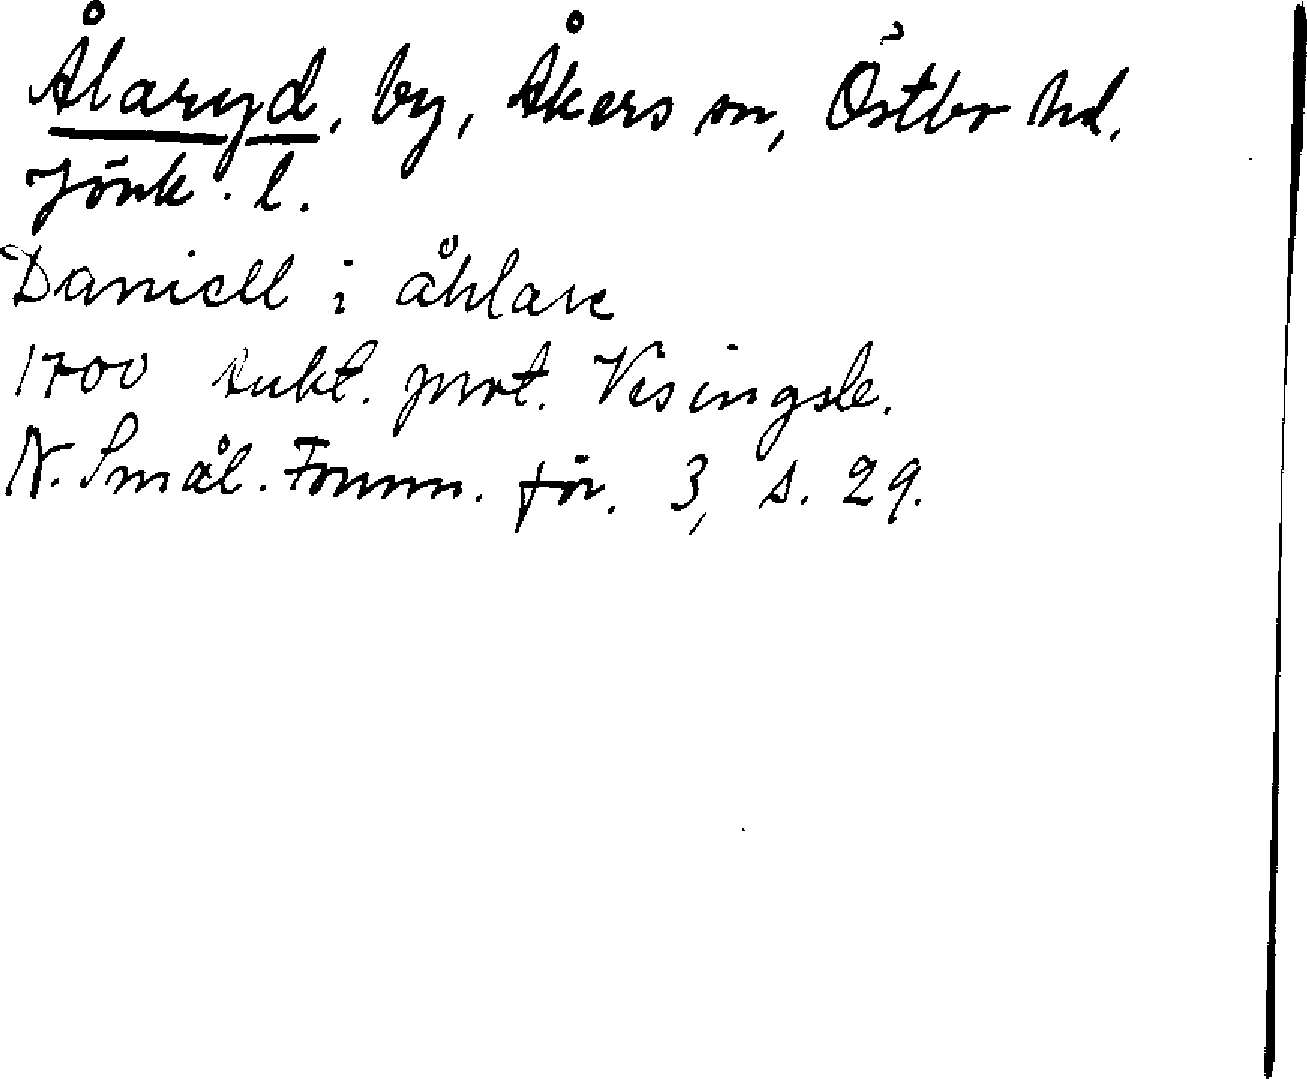 Ålaryd, by, Åkers sn, Östbo hd,
Jönk. l.
Daniell i åhlare
1700 tukt. prot. Visingsb.
N. Smål. Fornm. för. 3, s. 29.